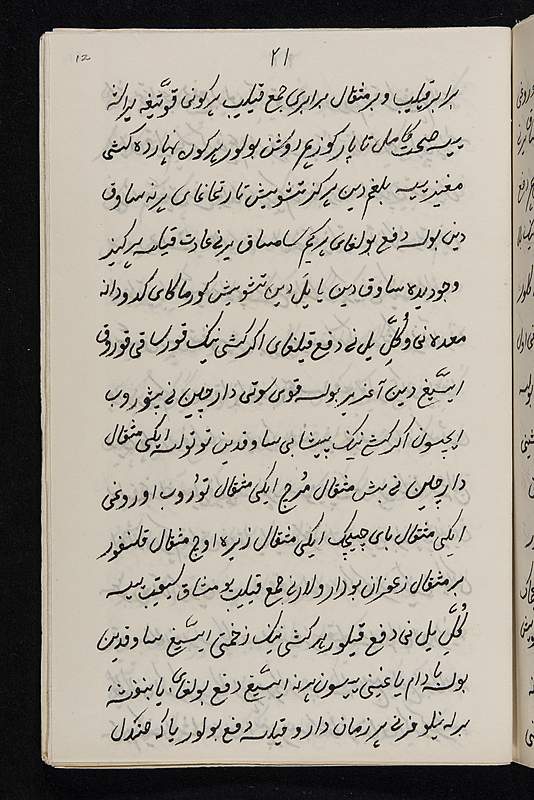 12
۲۱
برابر قیلیب و بر مثقال برابری جمع قیلیب هر کونی قویتیغه
ییسه صحت کامل تا پار کوزیم روشن بولور هر کون نهارده کشی
مغیز ییسه بلغم دین هرکز تشویش تارتماغای برنه ساوق
دین بولسه دفع بولغای هر کیم سامساق یرنی عادت قیلسه هرکیز
وجودیده ساوق دین یا یل دین تشویش کورماکای کدو دانه
معده نی و کل یل نی دفع قیلغای اکر کشی نینک قورساقی قوروق
ایسیغ دین آغریر بولسه قوی سوتی دارچین نی یشوروب
ایچسون اکر کشی نینک پیشابی ساوقدین توتولسه ایکی مثقال
دارچین نی بش مثقال مرچ ایکی مثقال توروب اوروغی
ایکی مثقال بای چیچک ایکی مثقال زیره اوچ مثقال قلنفور
بر مثقال زعفران بو دارولارنی جمع قیلیب بو مشاق سیقیب ییسه
کل یل نی دفع قیلور هر کشی نینک زخمتی ایسیغ ساوقدین
بولسه بادام یاغینی ییسون برنه ایسیغ دفع بولغای یا بنفشه
برله نیلوفرنی هر زمان دارو قیلسه دفع بولور یا که صندل